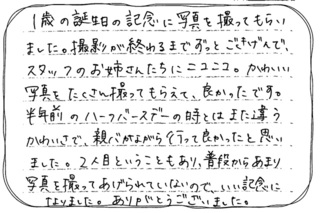 1歳の誕生日の記念に写真を撮ってもらい
ました。撮影が終わるまでずっとごきげんで、
スタッフのお姉さんたちにニコニコ。かわいい
写真をたくさん撮ってもらえて、良かったです。
半年前のハーフバースデーの時とはまた違う
かわいさで、親バカながら行って良かったと思い
ました。2人目ということもあり、普段からあまり
写真を撮ってあげられていないので、いい記念に
なりました。ありがとうございました。